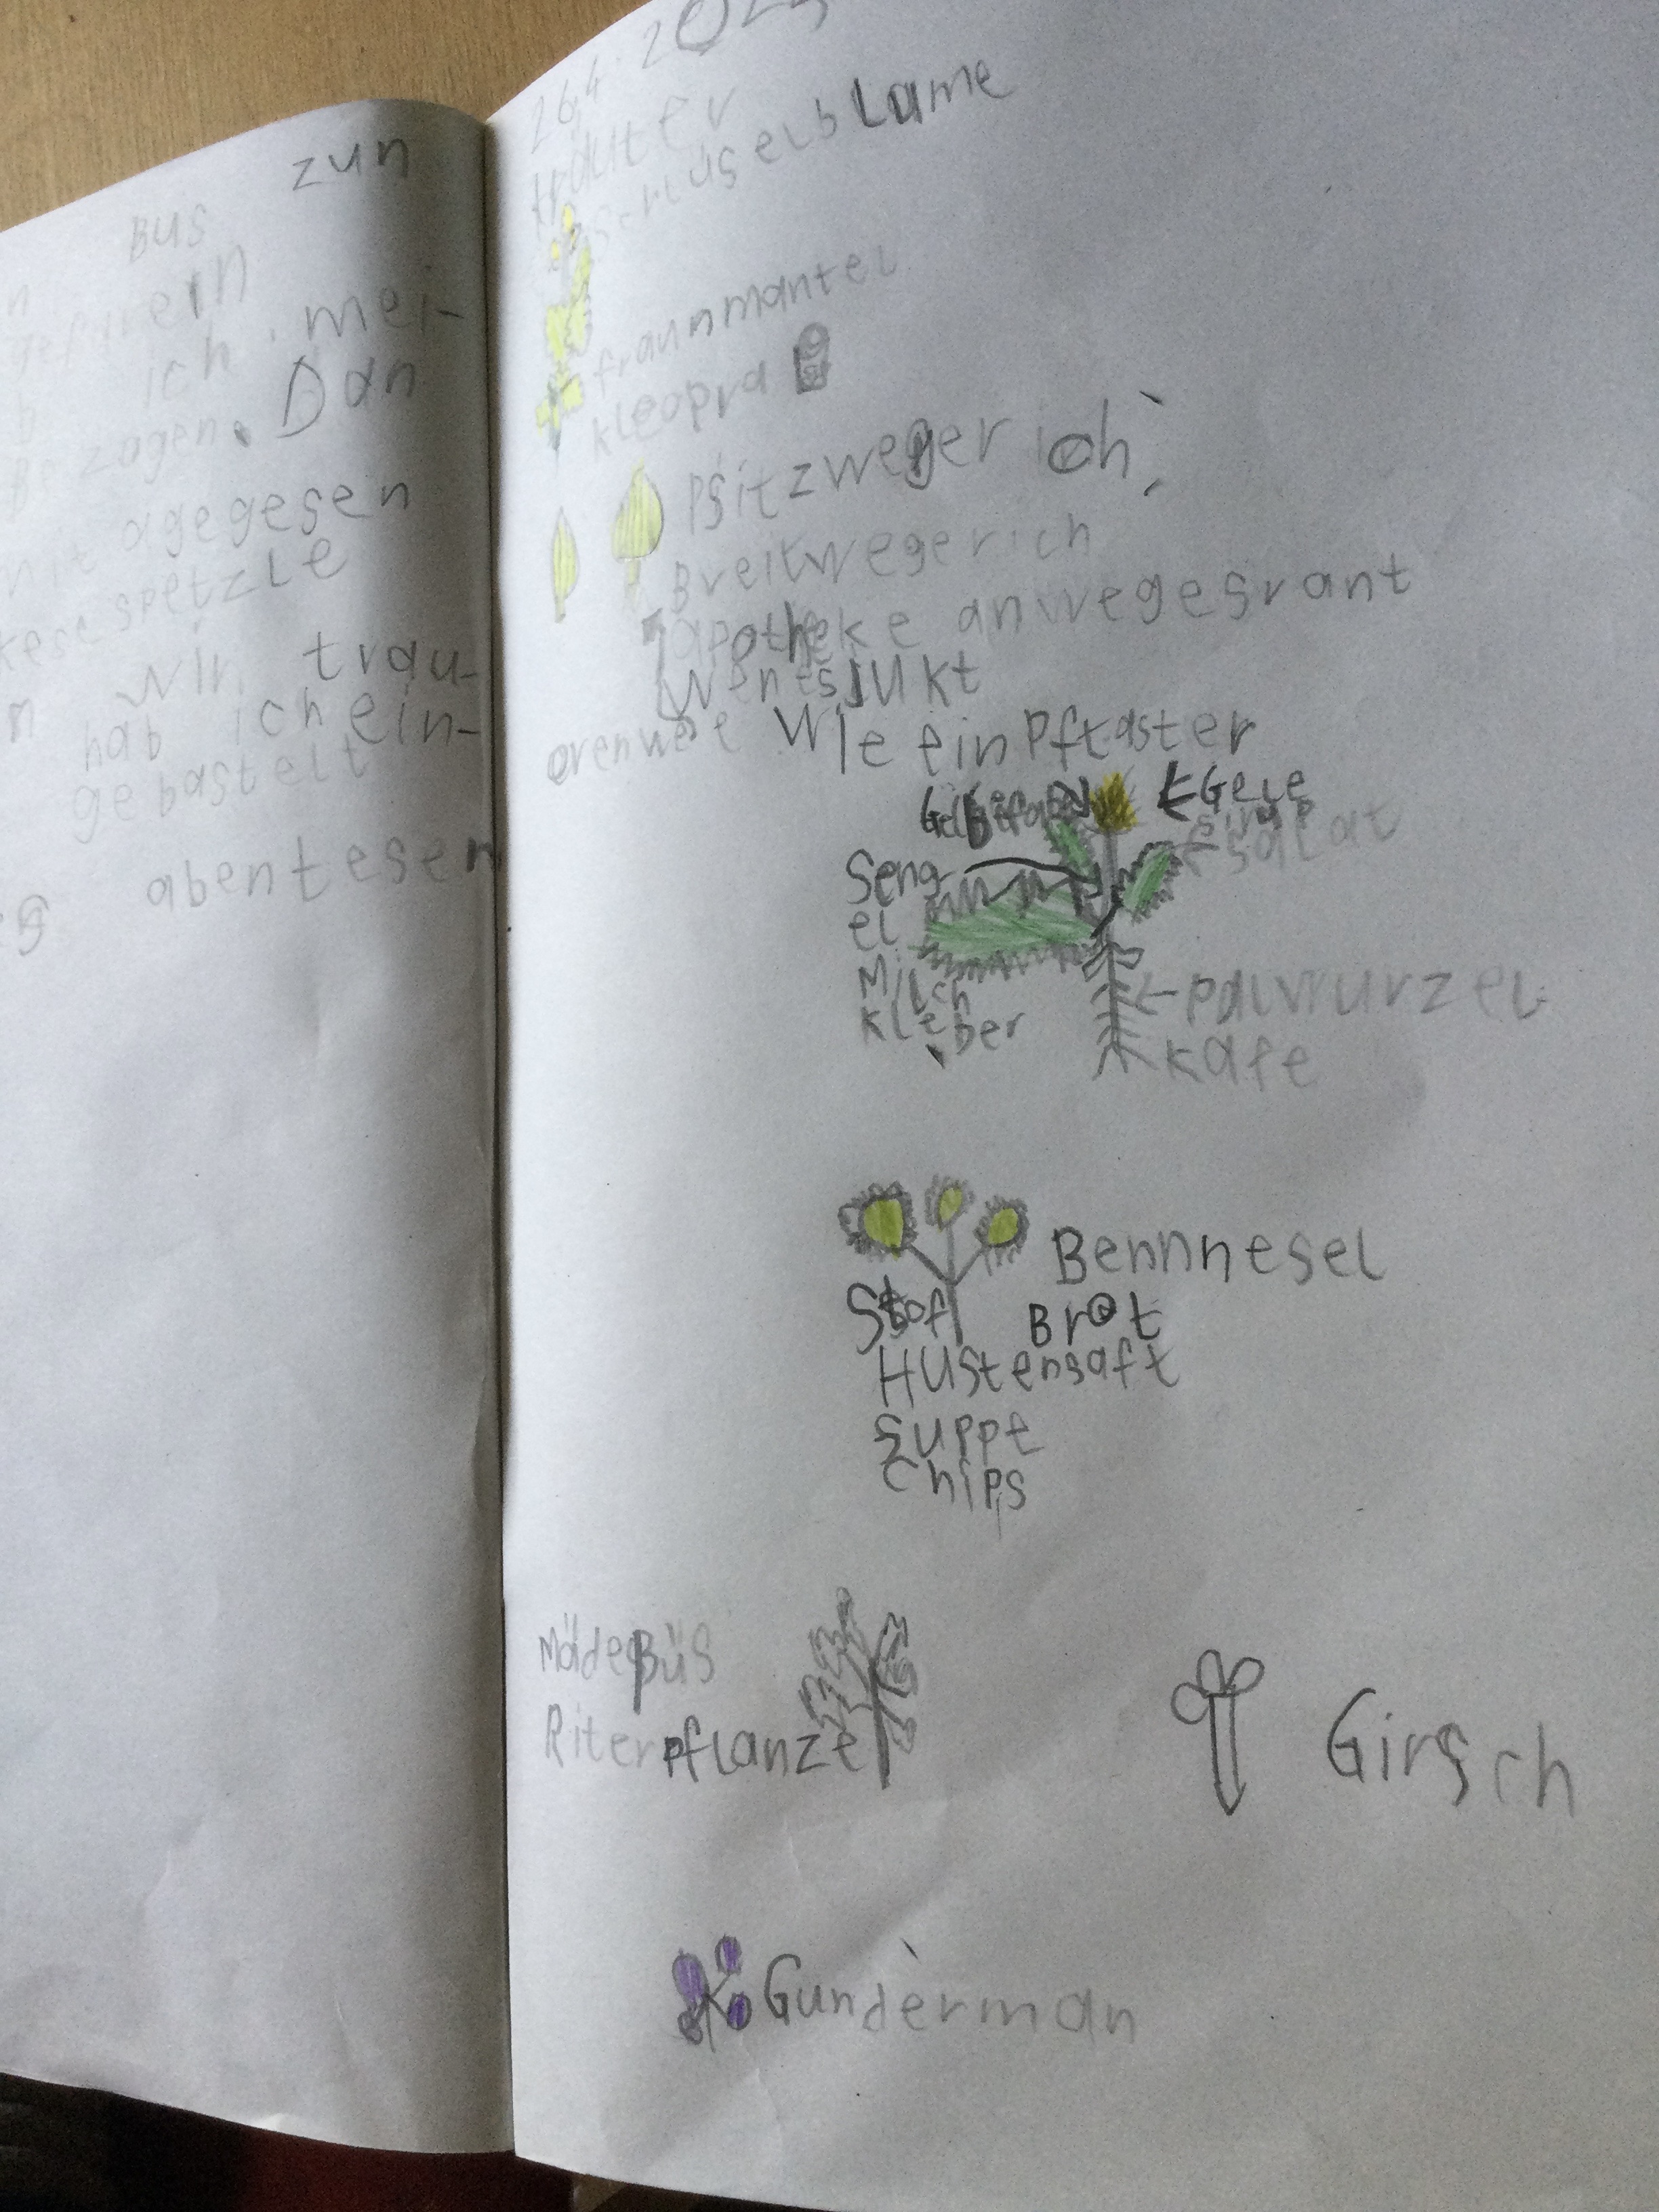 zun
Bus
ein
ich mei-
zogen. Dan
agegesen
spetzle
wir trau-
hab ich ein-
gebastelt
abentesen
26.4.202
Kräuter
blume
fraunmantel
kleopra
Psitzwegerich
Breitwegerich
apotheke anwegesrant
wentsjukt
wie ein Pflaster
Gele
salat
Seng
el
Milch
kleber
palwurzel
kafe
Bennnesel
Stof Brot
Hustensaft
Suppe
Chips
MädeBüs
Riterpflanze
Girsch
Gunderman